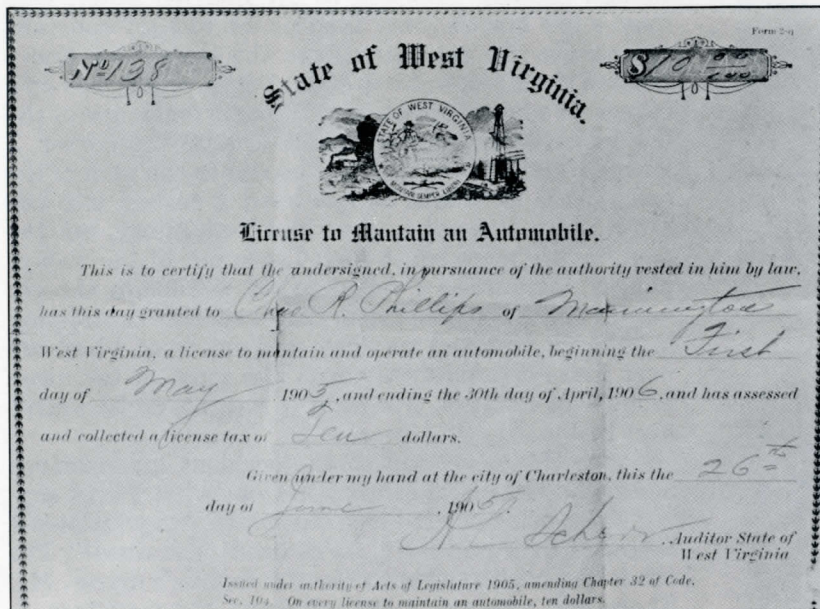 Form 2-9
No 138
$10 00/100
State of West Virginia.
STATE OF WEST VIRGINIA
MONTANI SEMPER LIBERI
License to Mantain an Automobile.
This is to certify that the undersigned, in pursuance of the authority vested in him by law,
has this day granted to Chas R. Phillips of Mannington
West Virginia, a license to mantain and operate an automobile, beginning the First
day of May 1905, and ending the 30th day of April, 1906, and has assessed
and collected a license tax of Ten dollars.
Given under my hand at the city of Charleston, this the 26th
day of June, 1905.
Scherr, Auditor State of
West Virginia
Issued under authority of Acts of Legislature 1905, amending Chapter 32 of Code,
Sec. 104. On every license to maintain an automobile, ten dollars.